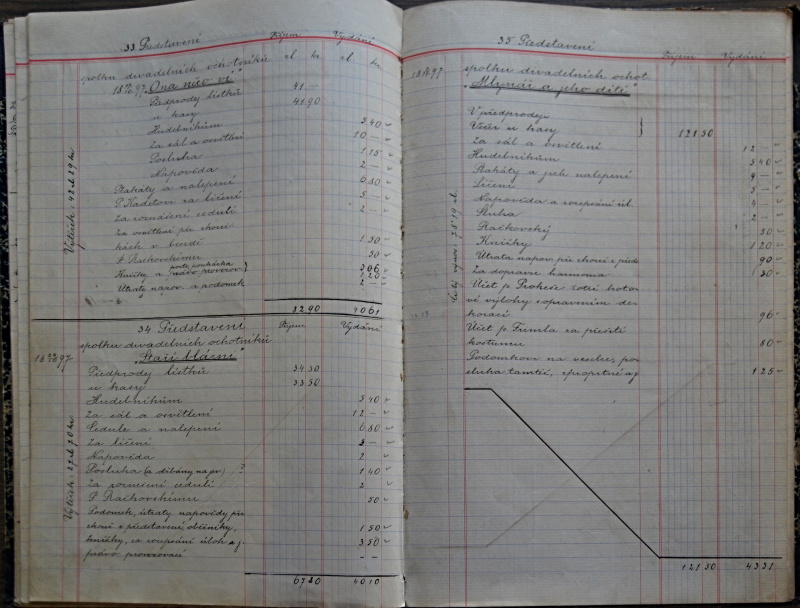 33. Představení Příjem Vydání
spolku divadelních ochotníků zl. kr. zl. kr.
97. "Ona něco ví"
Předprodej lístků 41 —
u kasy 41.90
Hudebníkům 5 40
Za sál a osvětlení 10 —
Posluha 1 15
Nápověda 2 —
Plakáty a nalepení 6 80
P. Kadeťovi za líčení 5 —
Za roznešení cedulí 2 —
Za osvětlení při zkouš
kách v boudě 1 50
P. Račkovskému 50
Knížky a právo provozov. porto, poukázka 3 06
1 20
Útraty nápov. a podomek 2 —
82 90 40 61
Výtěžek: 42 zl. 29 kr.
34. Představení Příjem Vydání
spolku divadelních ochotníků
97. "Staří blázni"
Předprodej lístků 34.30
u kasy 33 50
Hudebníkům 5 40
Za sál a osvětlení 12 —
Cedule a nalepení 6 80
Za líčení 5 —
Nápověda 2 —
Posluha (a džbány na pv.) 1 40
Za roznešení cedulí 2
P. Račkovskému 50
Podomek, útraty nápovědy při
zkouš. a představení
1 50
knížky, za rozepsání úloh a
3 50
právo provozovací — —
67 80 40 10
Výtěžek: 27 zl. 70 kr.
35. Představení Příjem Vydání
spolku divadelních ochot.
97. "Mlynář a jeho dítě"
V předprodeji
Večer u kasy 121 50
Za sál a osvětlení 12 —
Hudebníkům 5 40
Plakáty a jich nalepení 9 —
Líčení 5 —
Nápověda a rozepsání úl. 4 —
Sluha 2 —
Račkovský 50
Knížky 1 20
Útrata nápov. při zkouš. a před. 90
Za dopravu harmonia 30
Účet p. Prokeše
ové výlohy s opravením de
korací 96
Účet p. Fumla za přešití
kostumu 80
Podomkovi na veselce, po
sluha tamtéž, zpropitné aj. 1 25
121 50 43 31
Čistý výnos: 78 19 zl.